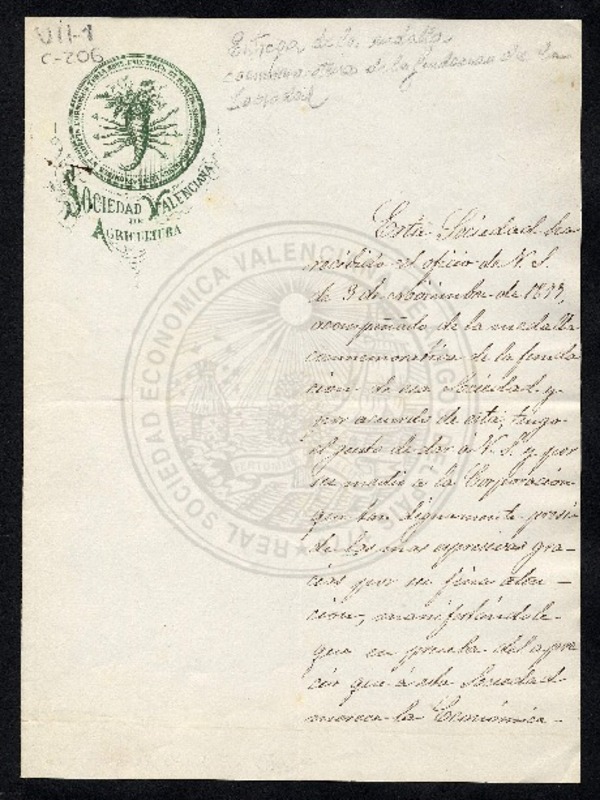 VII-1
C-206
Entrega de la medalla
conmemorativa de la fundacion de la
Sociedad
SOCIEDAD VALENCIANA
DE
AGRICULTURA
Esta Sociedad ha
recibido el oficio de V. S.
de 3 de Noviembre de 1877,
acompañado de la medalla
conmemorativa de la funda
cion de esa Sociedad y
por acuerdo de esta, tengo
el gusto de dar a V. S. y por
su medio a la Corporacion
que tan dignamente presi-
de las mas espresivas gra-
cias por su fina aten-
cion, manifestandole
que en prueba del apre
cio que á esta Sociedad
merece la Económica
REAL SOCIEDAD ECONOMICA VALENCIANA